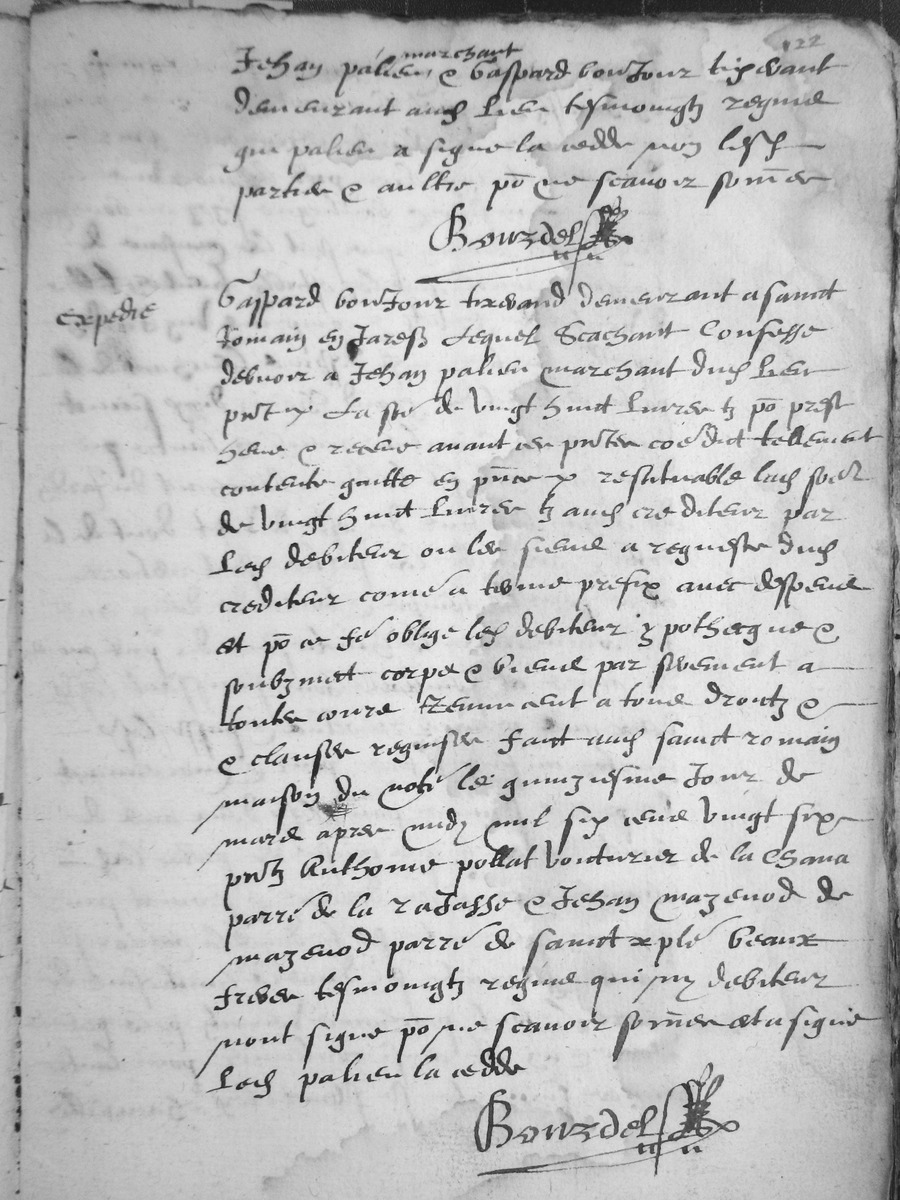 122
marchant
Jehan palieu & Gaspard bonJour tixerant
demeurant aud lieu tesmoingtz requis
qui palieu a signe la cedde non lesd
parties & aultre po ne scavoir some
Bourdel
Expedie
Gaspard bonJour tixerand demeurant a sainct
Romain en Jarestz Lequel Scachant Confesse
debvoir a Jehan palieu marchant dud lieu
pnt La soe de vingt huict livres tz po prest
heue & receue avant ces pntes coe dict tellement
contente quitte en pnce restituable lad soe
de vingt huict livres tz aud crediteur par
Led debiteur ou les siens a requeste dud
crediteur come a terme prefix avec despens
et po ce fe oblige led debiteur ypothecque &
soubzmect corps & biens par serement a
toutes cours Renuncent a tous droictz &
& clauses requises faict aud sainct romain
maison du note le quinziesme Jour de
mars apres midy mil six cens vingt six
pntz Anthoine pollat voicturier de la Chana
parre de la raJasse & Jehan mazenod de
mazenod parre de sainct xple beaux
freres tesmoingtz requis qui ny debiteur
nont signe po ne scavoir somes et a signe
Led palieu la cedde
Bourdel